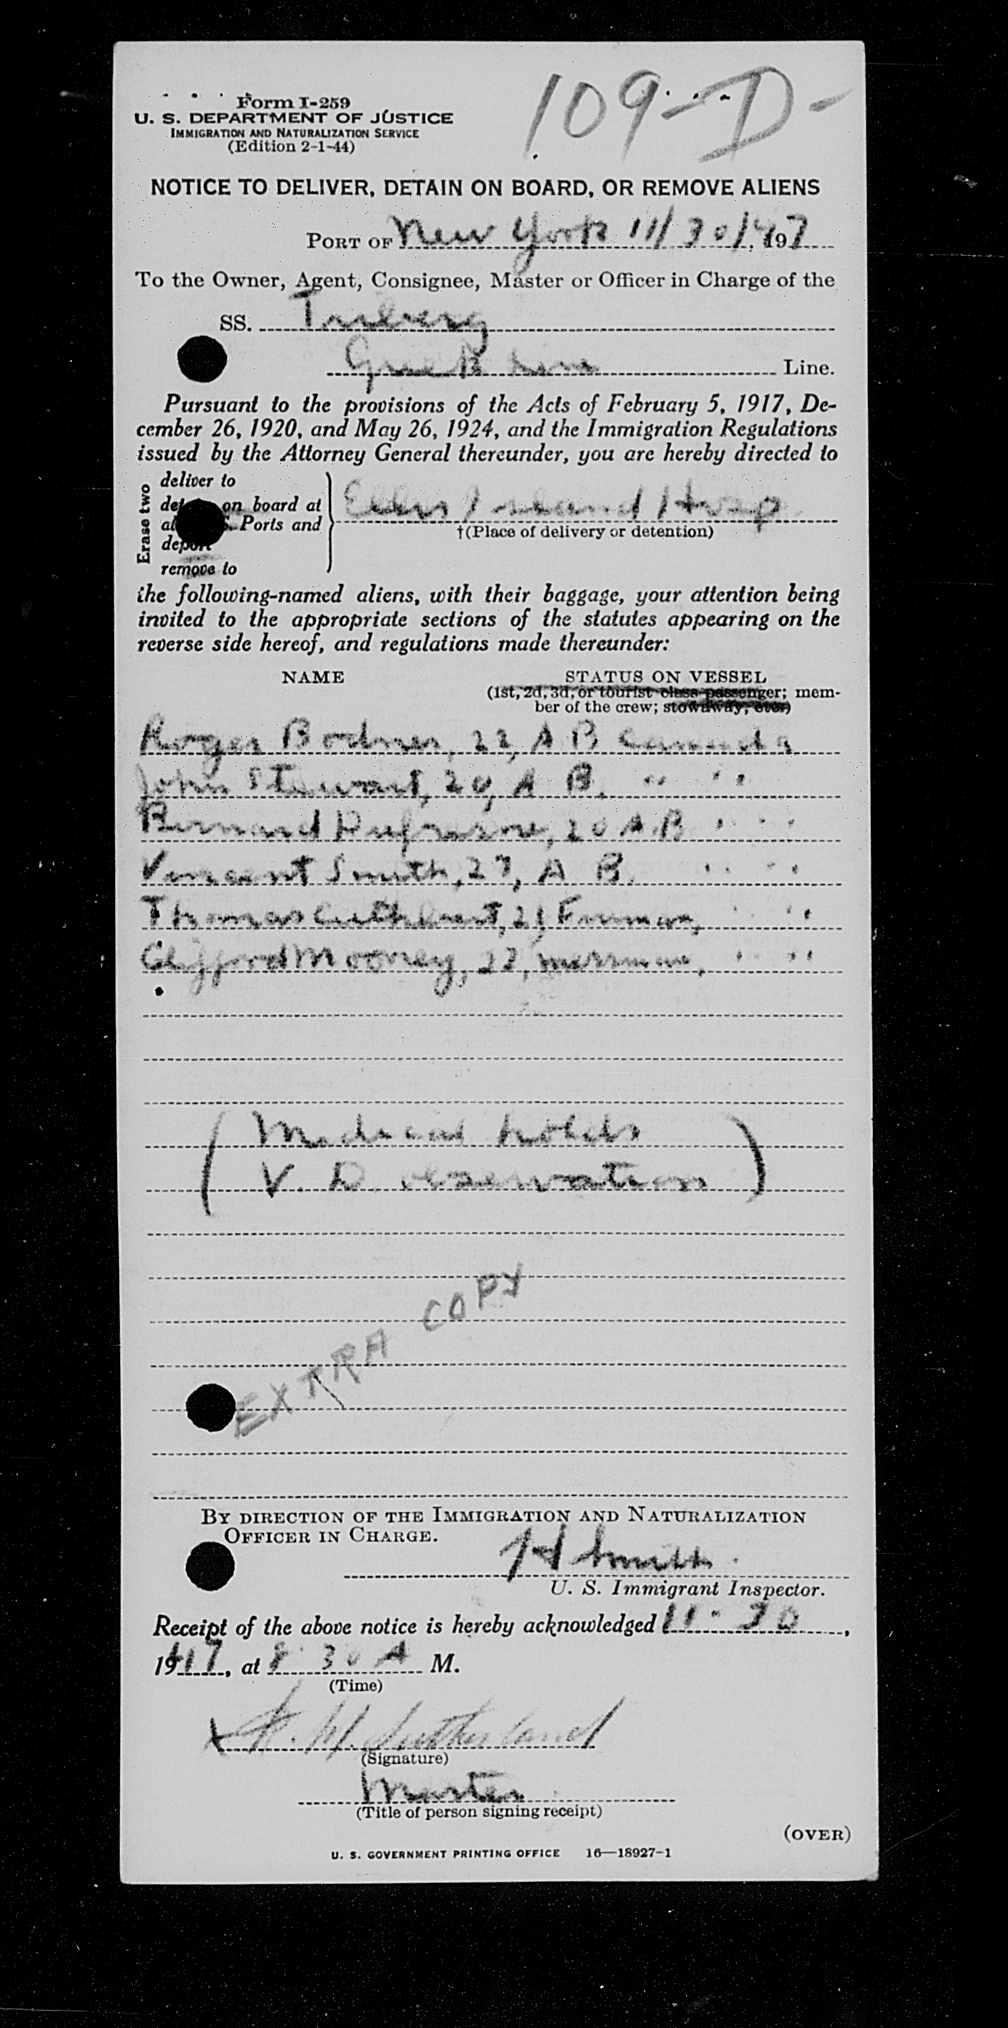 109-D-
Form I-259
U. S. DEPARTMENT OF JUSTICE
IMMIGRATION AND NATURALIZATION SERVICE
(Edition 2-1-44)
NOTICE TO DELIVER, DETAIN ON BOARD, OR REMOVE ALIENS
PORT OF New York 11/30/47, 197
To the Owner, Agent, Consignee, Master or Officer in Charge of the
SS.
Greek Line Line.
Pursuant to the provisions of the Acts of February 5, 1917, De-
cember 26, 1920, and May 26, 1924, and the Immigration Regulations
issued by the Attorney General thereunder, you are hereby directed to
Erase two
deliver to
on board at
Ports and
deport
remove to
Ellis Island Hosp
†(Place of delivery or detention)
the following-named aliens, with their baggage, your attention being
invited to the appropriate sections of the statutes appearing on the
reverse side hereof, and regulations made thereunder:
NAME STATUS ON VESSEL
(1st, 2d, 3d, or tourist class passenger; mem-
ber of the crew; stowaway, etc.)
Roger Bodner, 22, A B Canada
John Stewart, 20, A B. " "
Bernard Dufresne, 20 A.B " "
Vincent Smith, 23, A B. " "
Thomas Cuthbert, 21 Fireman, " "
Clifford Mooney, 22, messman, " "
(Medical holds
V. D. observation)
EXTRA COPY
BY DIRECTION OF THE IMMIGRATION AND NATURALIZATION
OFFICER IN CHARGE.
H Smith
U. S. Immigrant Inspector.
Receipt of the above notice is hereby acknowledged 11-30,
1947, at 8 30 A M.
(Time)
x Sutherland
(Signature)
Master
(Title of person signing receipt)
(OVER)
U. S. GOVERNMENT PRINTING OFFICE 16—18927-1